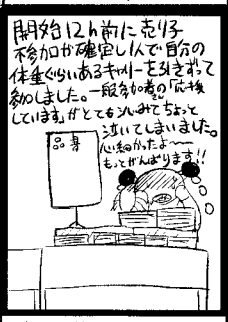 開始12h前に売り子
不参加が確定し1人で自分の
体重ぐらいあるキャリーを引きずって
参加しました。一般参加者の「応援
しています」がとても沁みてちょっと
泣いてしまいました。
心細かったよ〜
もっとがんばります!!
品書